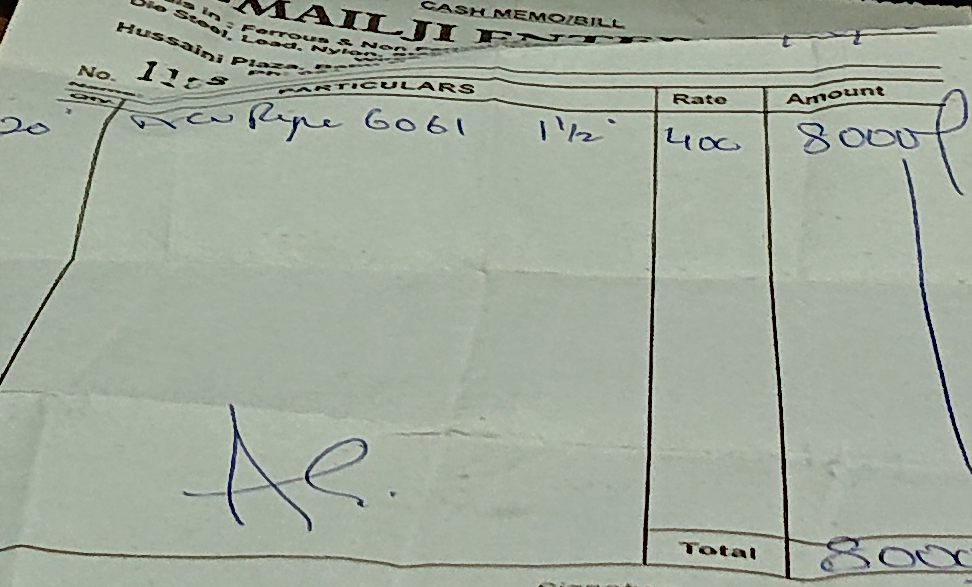 CASH MEMO/BILL
MAILJI ENTE
ls in : Ferrous & Non
Die Steel, Lead, Nylon
Hussaini Plaza,
No. 1108
PARTICULARS Rate Amount
Qty.
20' Pipe 6061 1½" 400 8000
Total 8000